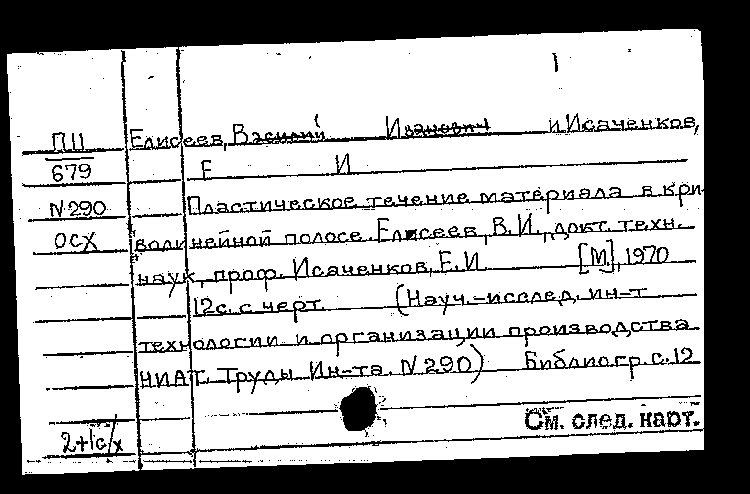 П11 Елисеев, Василий Иванович и Исаченков,
679 Е И
N290 Пластическое течение материала в кри-
ОСХ волинейной полосе. Елисеев, В.И., докт. техн.
наук, проф. Исаченков, Е.И. [М], 1970
12с. с черт. (Науч.-исслед. ин-т
технологии и организации производства
НИАТ. Труды Ин-та. N290) Библиогр. с.12
2+1с/х См. след. карт.